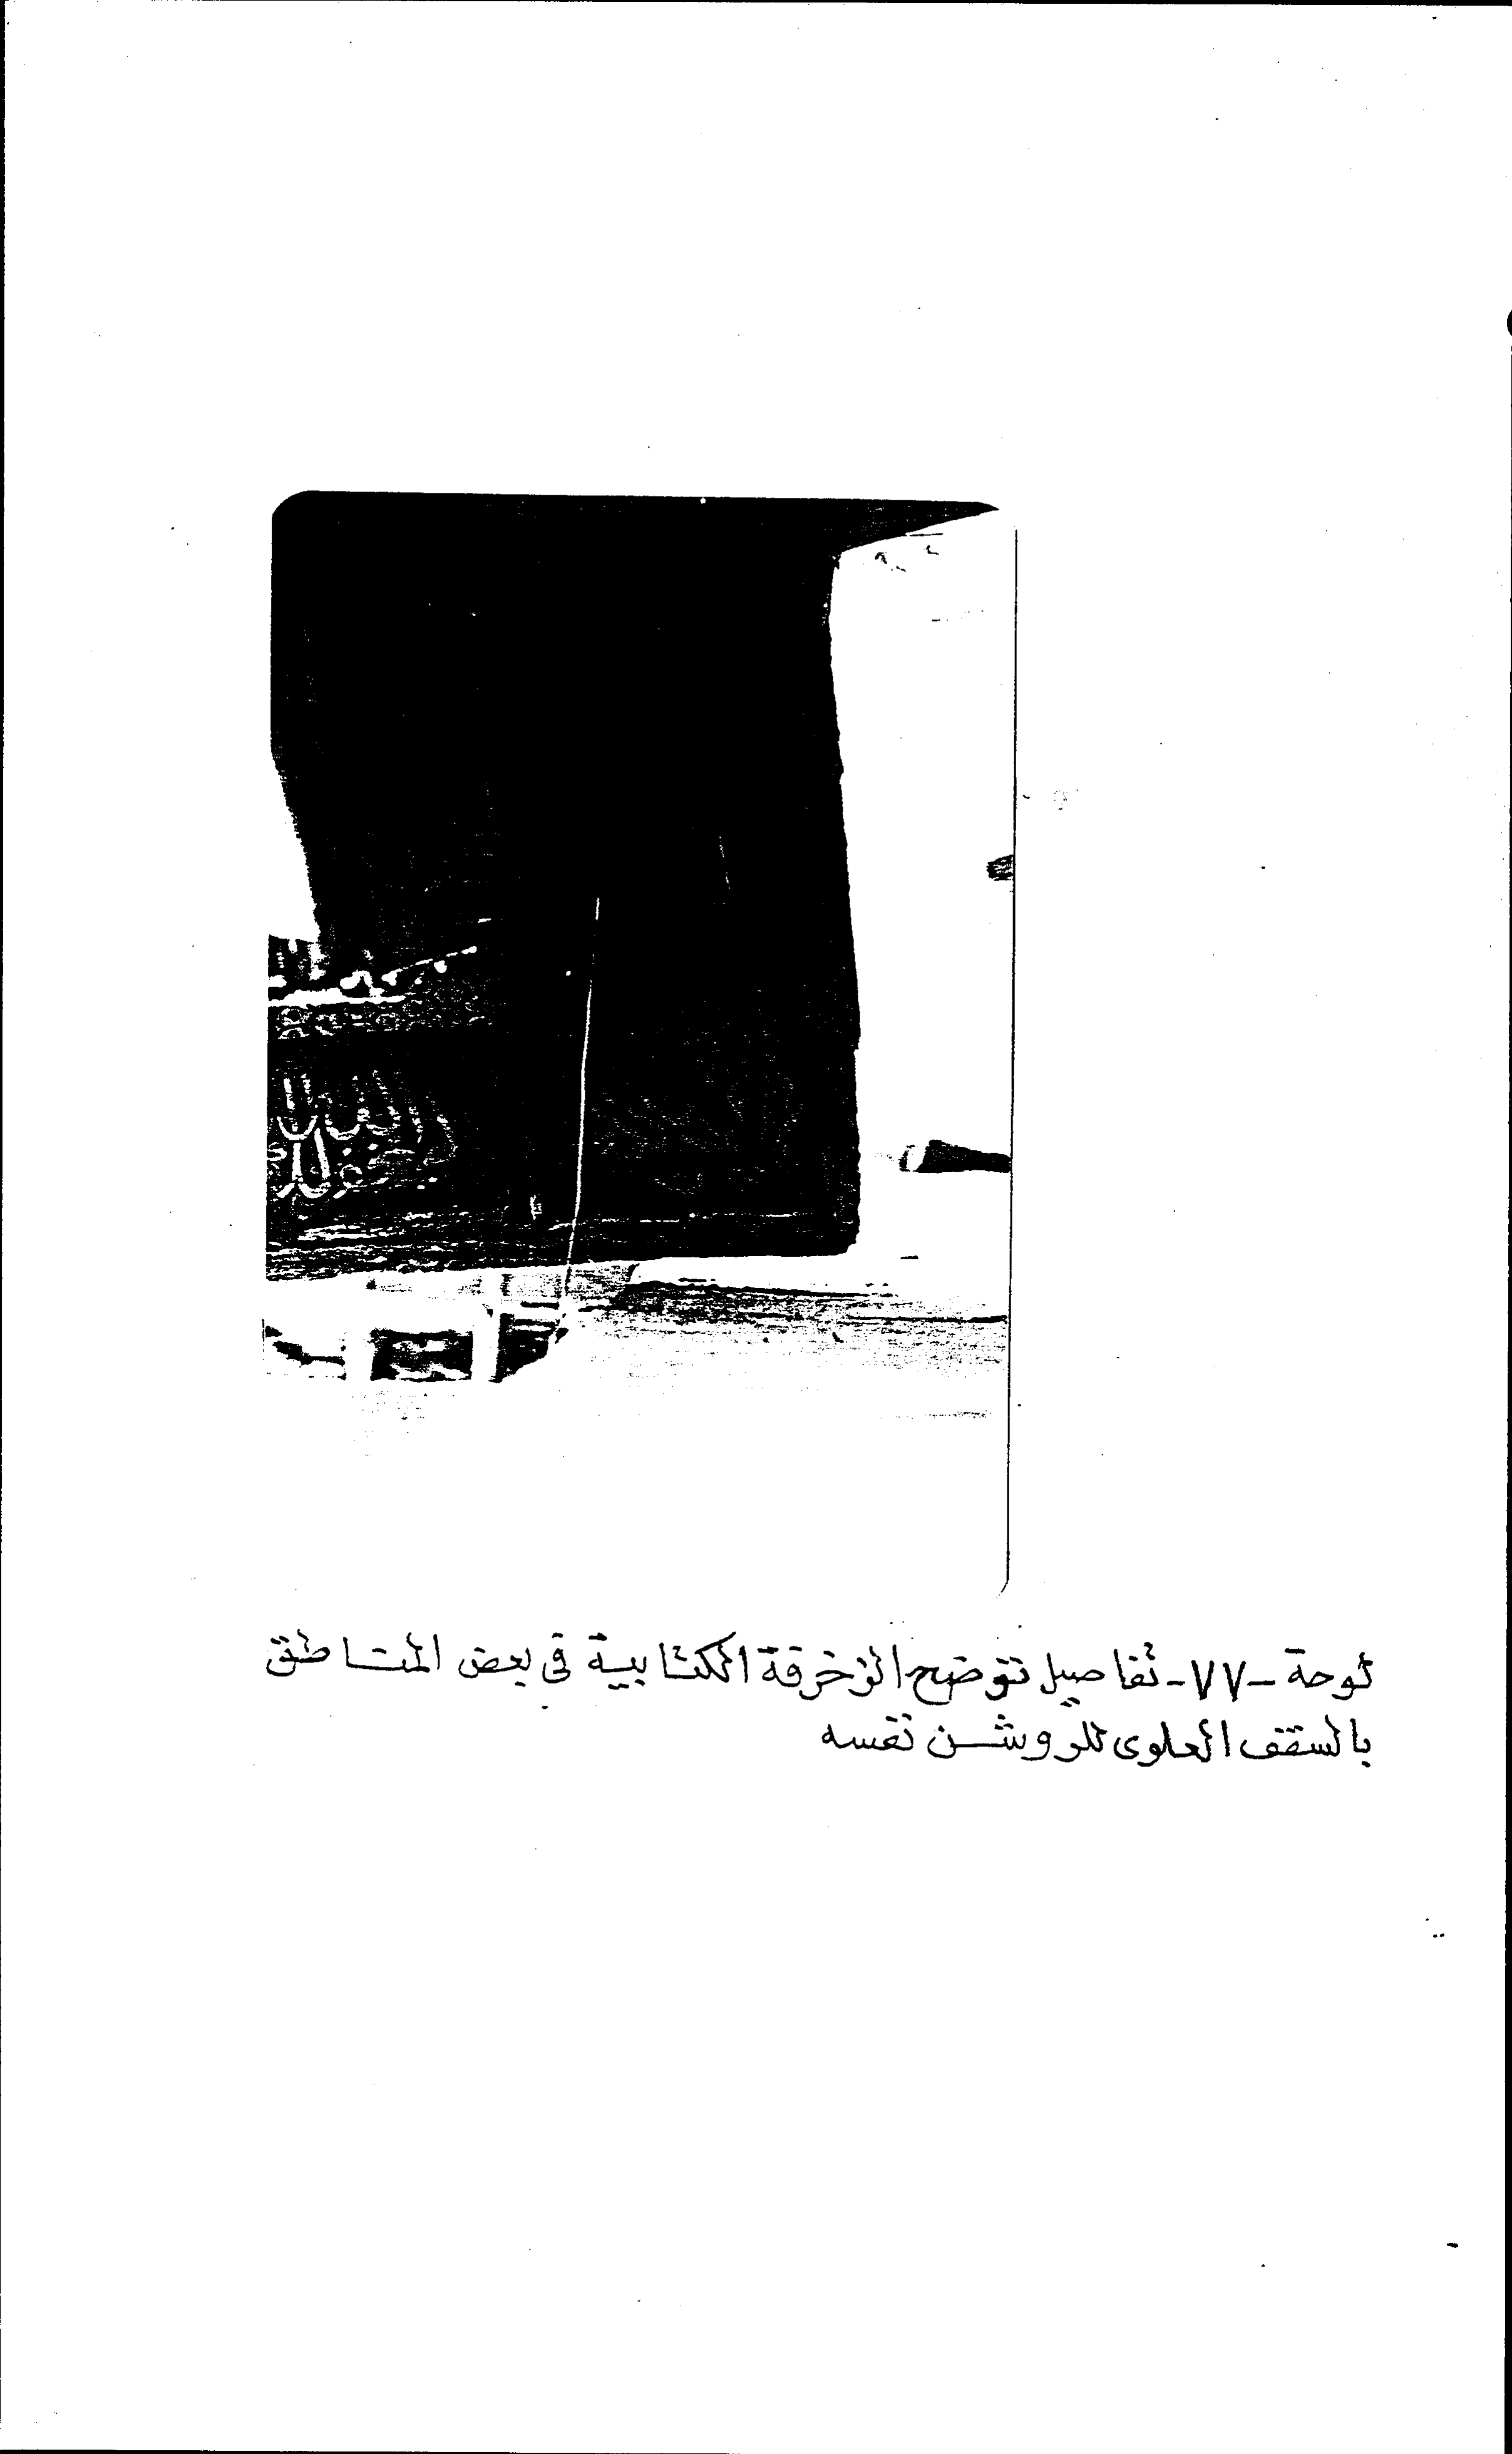 لوحة -٧٧- تفاصيل توضح الزخرفة الكتابية فى بعض المناطق
بالسقف العلوى للروشن نفسه